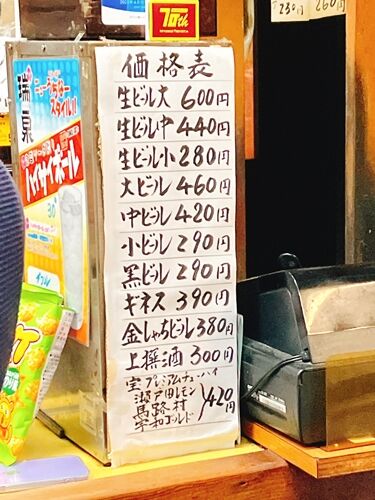 230円
260円
70th
価格表
生ビル大 600円
生ビル中 440円
生ビル小 280円
大ビル 460円
中ビル 420円
小ビル 290円
黒ビル 290円
ギネス 390円
金しゃちビル 380円
上撰酒 300円
宝プレミアムチューハイ
瀬戸田レモン
馬路村
宇和ゴールド
420円
瑞泉
ニュースタイル!!
ハイサイボール